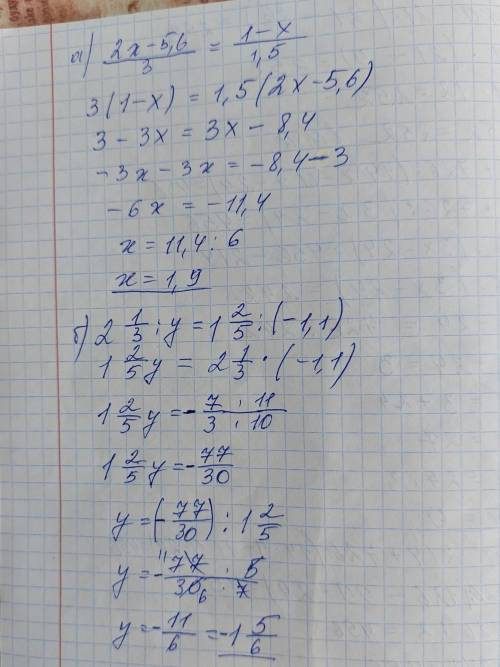 а) (2x-5,6)/3 = (1-x)/1,5
3(1-x) = 1,5(2x-5,6)
3 - 3x = 3x - 8,4
-3x - 3x = -8,4 - 3
-6x = -11,4
x = 11,4 : 6
x = 1,9
б) 2 1/3 : y = 1 2/5 : (-1,1)
1 2/5 y = 2 1/3 · (-1,1)
1 2/5 y = - (7 · 11)/(3 · 10)
1 2/5 y = - 77/30
y = (- 77/30) : 1 2/5
y = - (77 11 · 5)/(30 6 · 7)
y = - 11/6 = -1 5/6